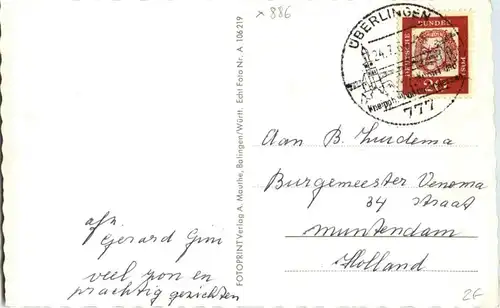 x 886
ÜBERLINGEN
24.7.6
DEUTSCHE BUNDESPOST
20
777
FOTOPRINT Verlag A. Mauthe, Balingen/Württ. Echt Foto Nr. A 106 219
Aan B. Zuidema
Burgemeester Venema
34 straat
Muntendam
Holland
afz.
Gerard
veel zon en
prachtig gezichten
2E